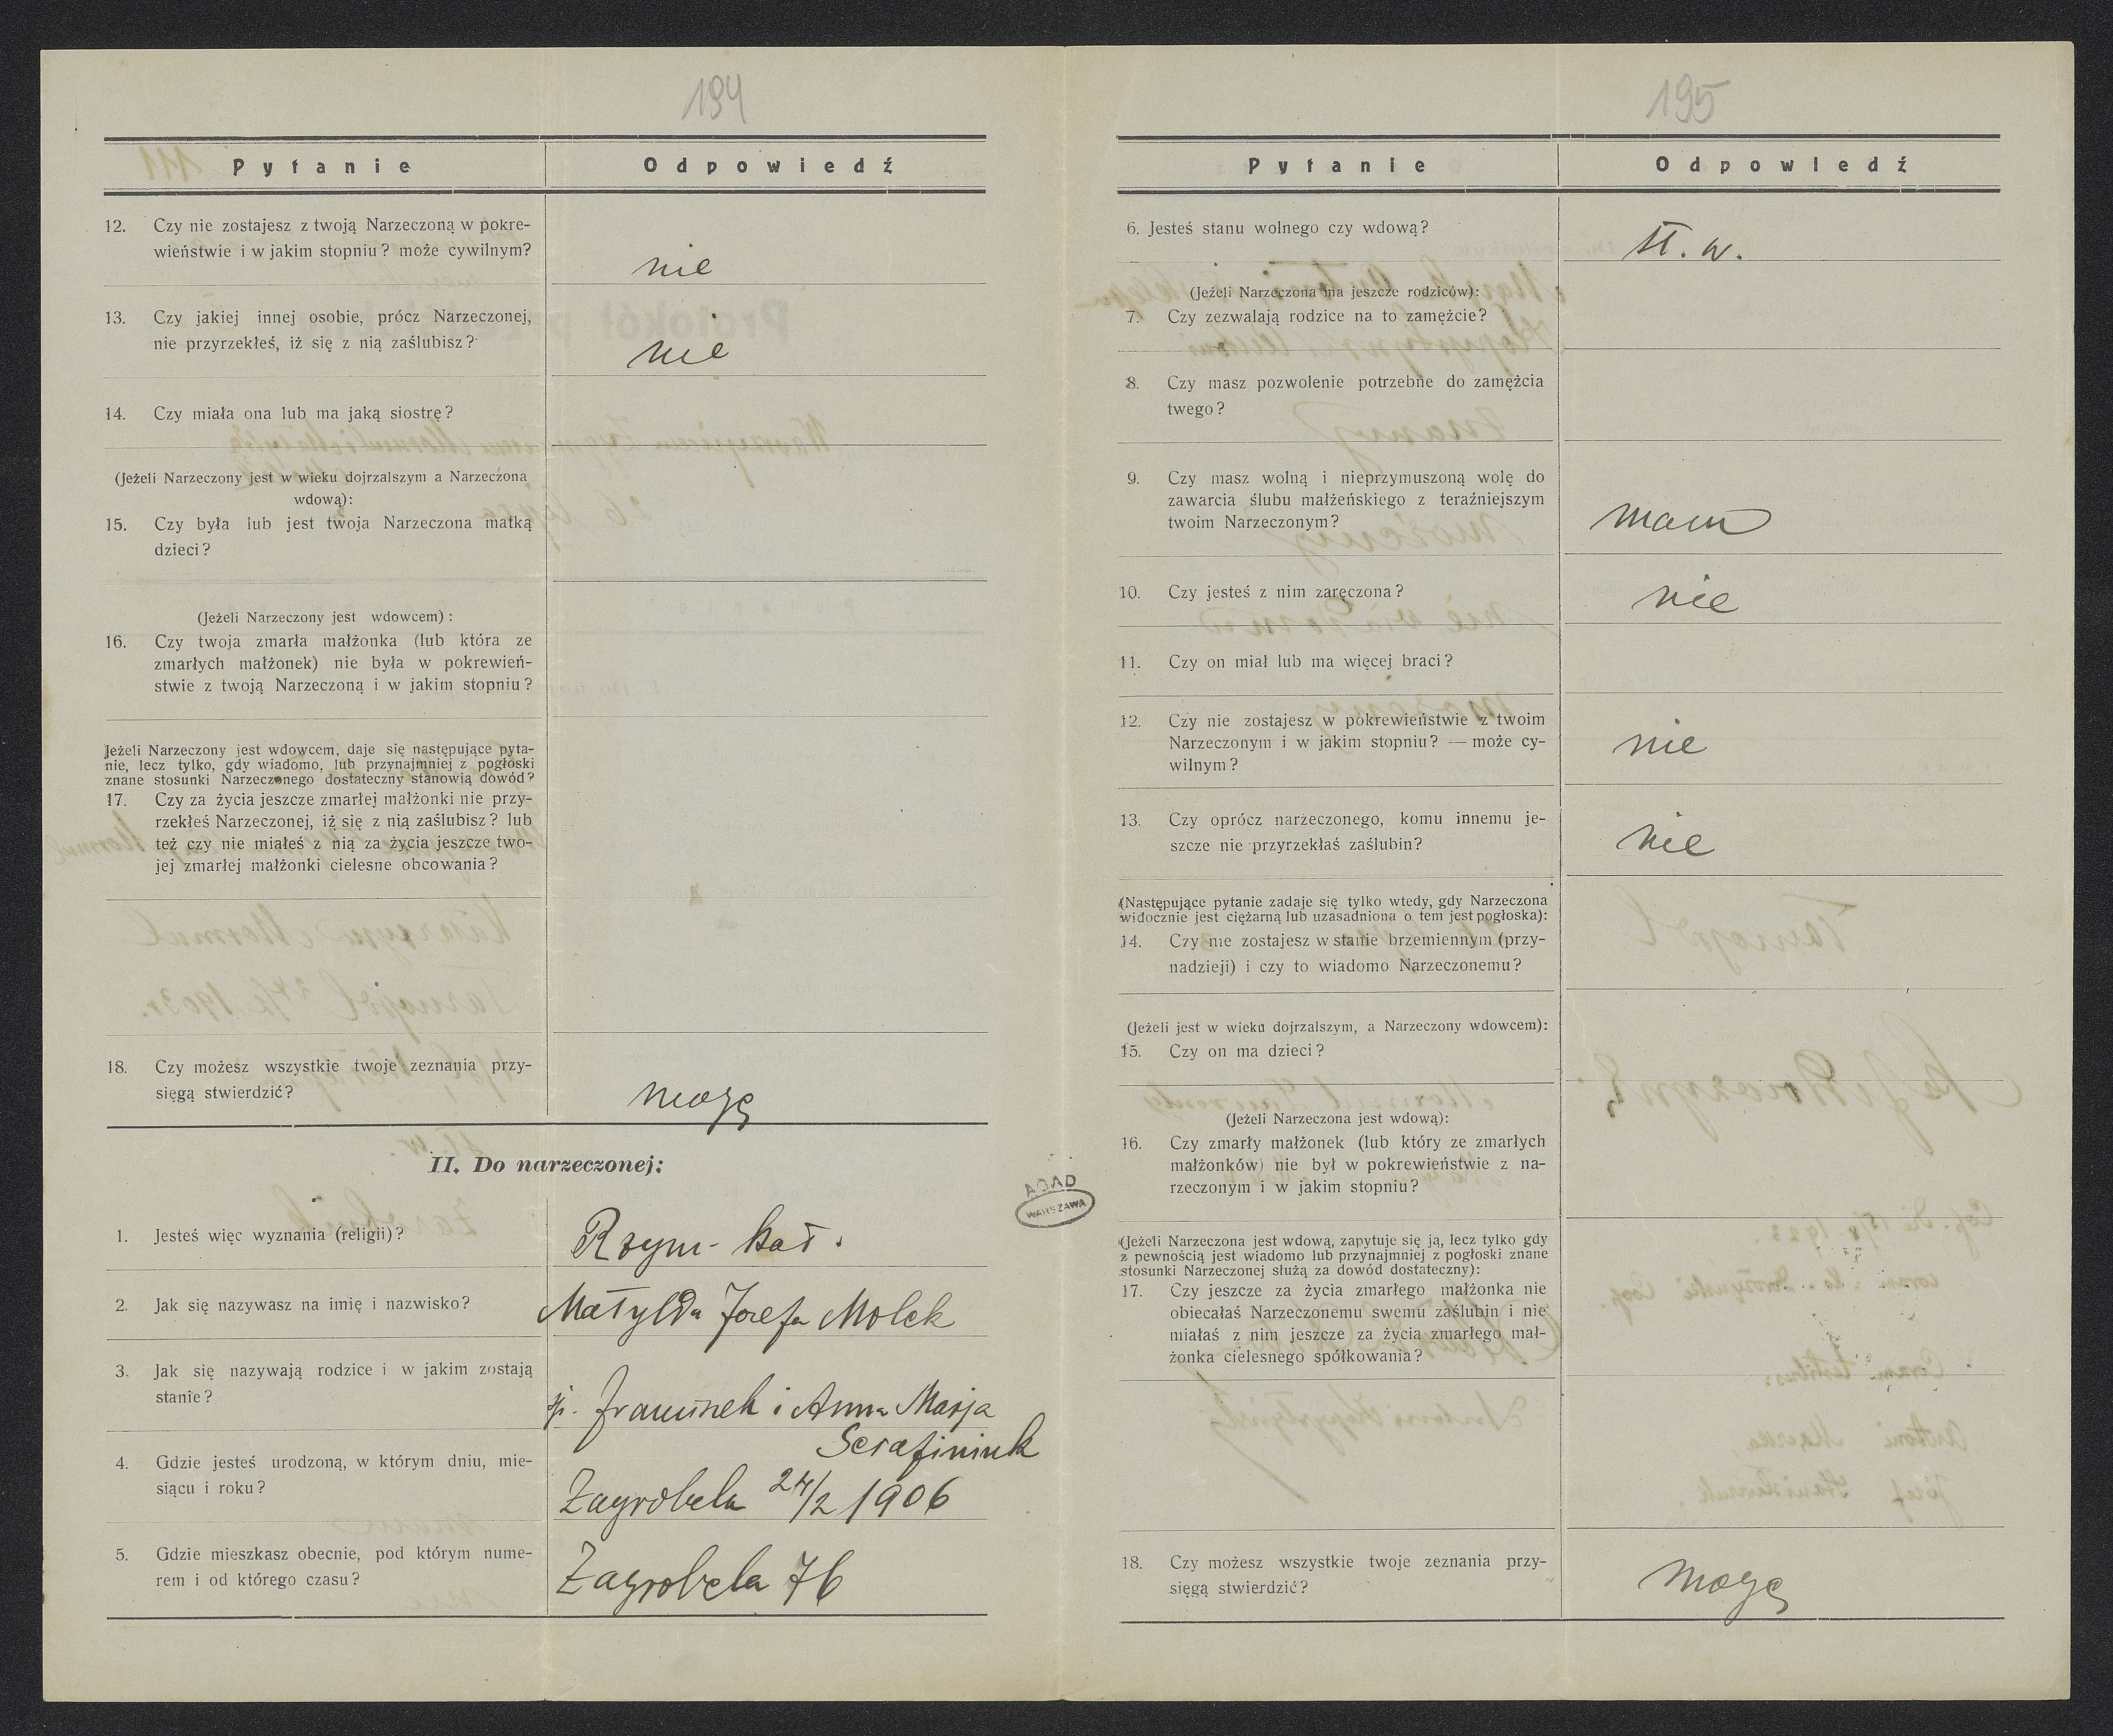 194
Pytanie
Odpowiedź
12. Czy nie zostajesz z twoją Narzeczoną w pokre-
wieństwie i w jakim stopniu? może cywilnym?
nie
13. Czy jakiej innej osobie, prócz Narzeczonej,
nie przyrzekłeś, iż się z nią zaślubisz?
nie
14. Czy miała ona lub ma jaką siostrę?
(Jeżeli Narzeczony jest w wieku dojrzalszym a Narzeczona
wdową):
15. Czy była lub jest twoja Narzeczona matką
dzieci?
(Jeżeli Narzeczony jest wdowcem):
16. Czy twoja zmarła małżonka (lub która ze
zmarłych małżonek) nie była w pokrewień-
stwie z twoją Narzeczoną i w jakim stopniu?
Jeżeli Narzeczony jest wdowcem, daje się następujące pyta-
nie, lecz tylko, gdy wiadomo, lub przynajmniej z pogłoski
znane stosunki Narzeczonego dostateczny stanowią dowód?
17. Czy za życia jeszcze zmarłej małżonki nie przy-
rzekłeś Narzeczonej, iż się z nią zaślubisz? lub
też czy nie miałeś z nią za życia jeszcze two-
jej zmarłej małżonki cielesne obcowania?
18. Czy możesz wszystkie twoje zeznania przy-
sięgą stwierdzić?
mogę
II. Do narzeczonej:
1. Jesteś więc wyznania (religii)?
Rzym-kat.
2. Jak się nazywasz na imię i nazwisko?
Matylda Józefa Molek
3. Jak się nazywają rodzice i w jakim zostają
stanie?
śp. Franciszek i Anna Marja
Serafiniuk
4. Gdzie jesteś urodzoną, w którym dniu, mie-
siącu i roku?
Zagrobela 24/2 1906
5. Gdzie mieszkasz obecnie, pod którym nume-
rem i od którego czasu?
Zagrobela 76
AGAD
WARSZAWA
195
Pytanie
Odpowiedź
6. Jesteś stanu wolnego czy wdową?
st. w.
(Jeżeli Narzeczona ma jeszcze rodziców):
7. Czy zezwalają rodzice na to zamężcie?
8. Czy masz pozwolenie potrzebne do zamężcia
twego?
9. Czy masz wolną i nieprzymuszoną wolę do
zawarcia ślubu małżeńskiego z teraźniejszym
twoim Narzeczonym?
mam
10. Czy jesteś z nim zaręczona?
nie
11. Czy on miał lub ma więcej braci?
12. Czy nie zostajesz w pokrewieństwie z twoim
Narzeczonym i w jakim stopniu? — może cy-
wilnym?
nie
13. Czy oprócz narzeczonego, komu innemu je-
szcze nie przyrzekłaś zaślubin?
nie
(Następujące pytanie zadaje się tylko wtedy, gdy Narzeczona
widocznie jest ciężarną lub uzasadniona o tem jest pogłoska):
14. Czy nie zostajesz w stanie brzemiennym (przy-
nadzieji) i czy to wiadomo Narzeczonemu?
(Jeżeli jest w wieku dojrzalszym, a Narzeczony wdowcem):
15. Czy on ma dzieci?
(Jeżeli Narzeczona jest wdową):
16. Czy zmarły małżonek (lub który ze zmarłych
małżonków) nie był w pokrewieństwie z na-
rzeczonym i w jakim stopniu?
(Jeżeli Narzeczona jest wdową, zapytuje się ją, lecz tylko gdy
z pewnością jest wiadomo lub przynajmniej z pogłoski znane
stosunki Narzeczonej służą za dowód dostateczny):
17. Czy jeszcze za życia zmarłego małżonka nie
obiecałaś Narzeczonemu swemu zaślubin i nie
miałaś z nim jeszcze za życia zmarłego mał-
żonka cielesnego spółkowania?
18. Czy możesz wszystkie twoje zeznania przy-
sięgą stwierdzić?
mogę